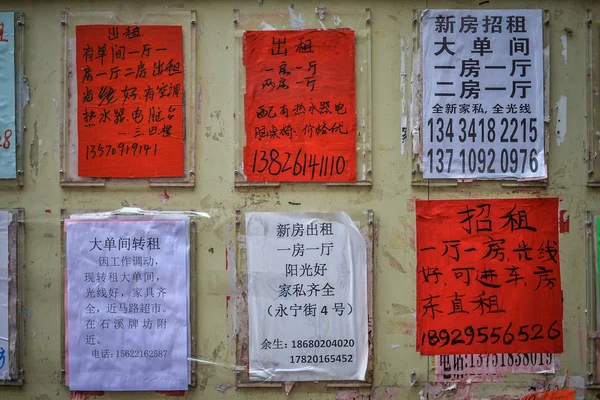 出租
有单间一厅一
房一厅二房出租
光线好.有空调
热水器.电脑台
一三四楼
13570919141
出租
一房一厅
两房一厅
配有热水器电
脑桌椅.价格优
13826141110
新房招租
大单间
一房一厅
二房一厅
全新家私,全光线
134 3418 2215
137 1092 0976
大单间转租
因工作调动,
现转租大单间,
光线好,家具齐
全,近马路超市。
在石溪牌坊附
近。
电话:15622162587
新房出租
一房一厅
阳光好
家私齐全
(永宁街4号)
余生:18680204020
17820165452
招租
一厅一房.光线
好.可进车,房
东直租
18929556526
电话:13751838019
8